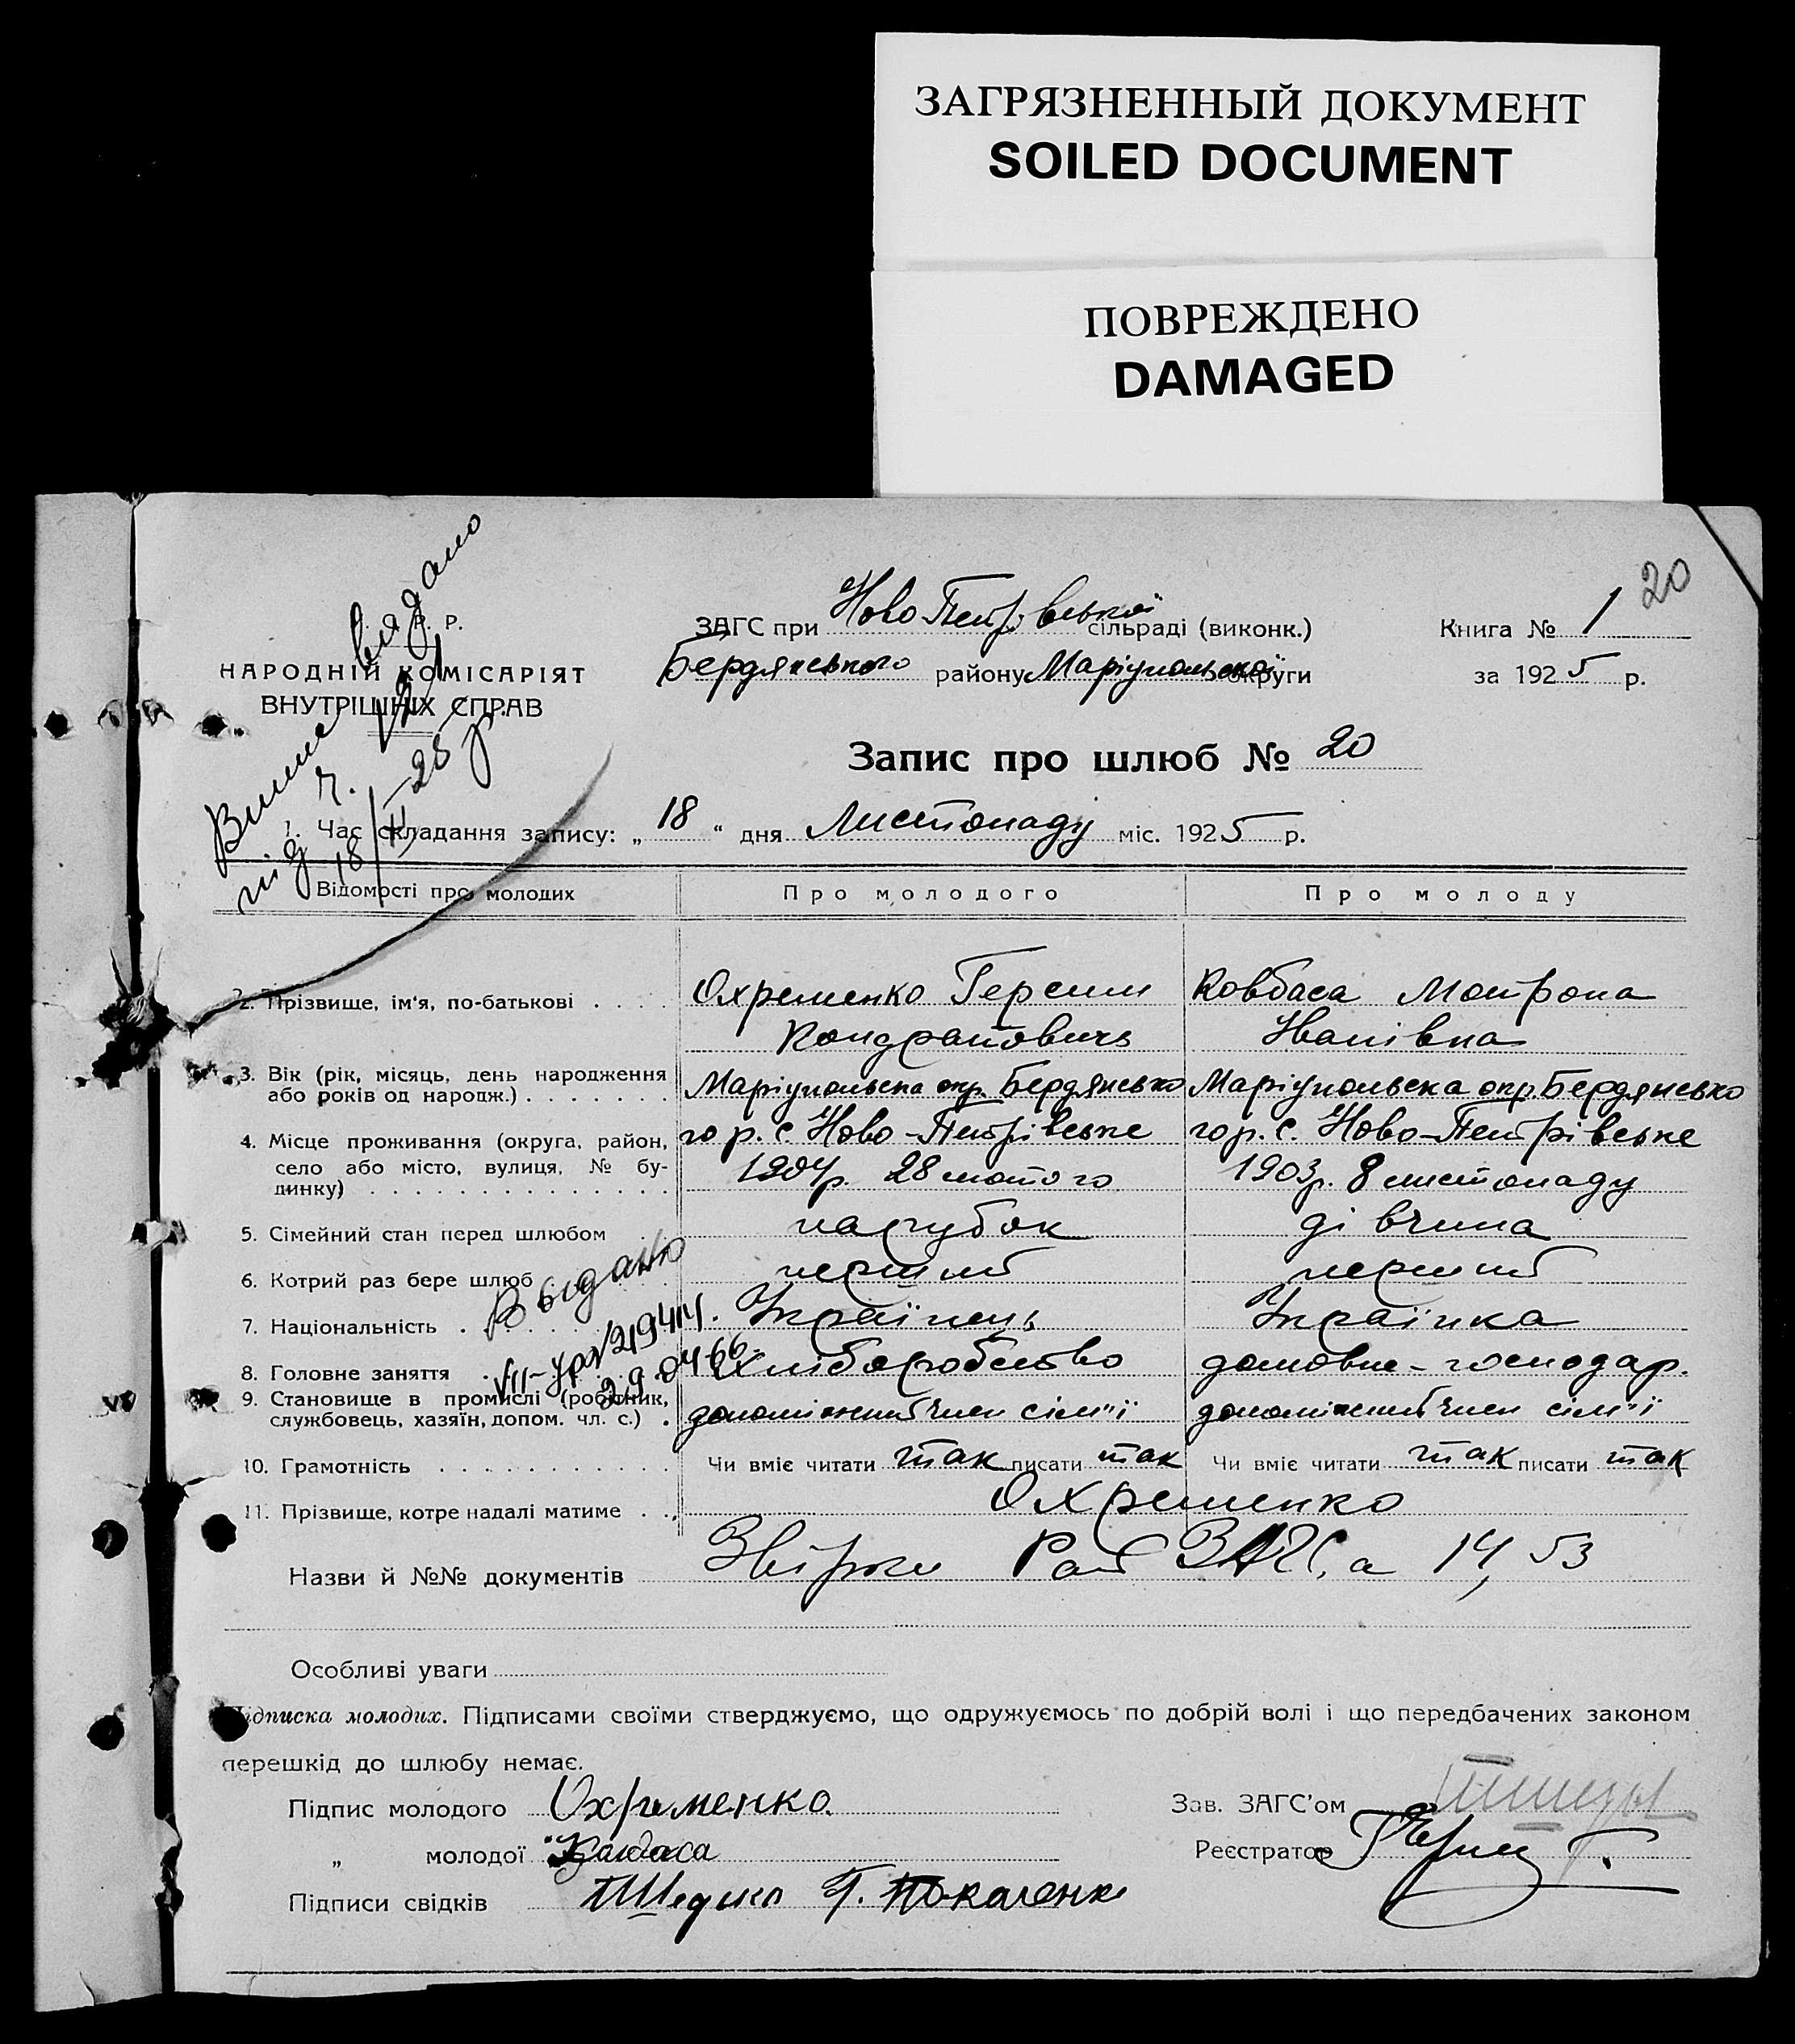 ЗАГРЯЗНЕННЫЙ ДОКУМЕНТ
SOILED DOCUMENT
ПОВРЕЖДЕНО
DAMAGED
20
видано
Р. Р.
НАРОДНІЙ КОМІСАРІЯТ
ВНУТРІШНІХ СПРАВ
ЗАГС при Ново Петрівської сільраді (виконк.)
Бердянського району Маріупольської округи
Книга № 1
за 1925 р.
Запис про шлюб № 20
1. Час складання запису: „18“ дня Листопаду міс. 1925 р.
Відомості про молодих
Про молодого
Про молоду
2. Прізвище, ім'я, по-батькові . . . . Охременко Герсим Ковбаса Мотрона
Кондратовичь Иванівна
3. Вік (рік, місяць, день народження або років од народж.) . . . . . . . Маріупольска окр. Бердянсько Маріупольска окр. Бердянсько
4. Місце проживання (округа, район, го р. с. Ново-Петрівське го р. с. Ново-Петрівське
село або місто, вулиця, № бу-
динку) . . . . . . . . . . . . . . 1904р. 28 лютого 1903р. 8 листопаду
5. Сімейний стан перед шлюбом парубок дівчина
6. Котрий раз бере шлюб перший перший
Выдано
7. Національність . Українець Українка
8. Головне заняття . Хліборобство домовне-господар.
29.04 66.
9. Становище в промислі (робітник,
службовець, хазяїн, допом. чл. с.) . допоміжний член сім"ї допоміжний член сім"ї
10. Грамотність . . . . . . . . . . . Чи вміє читати так писати так Чи вміє читати так писати так
11. Прізвище, котре надалі матиме . . Охременко
Назви й №№ документів Рай ЗАГС,а 14, 53
Особливі уваги
Підписка молодих. Підписами своїми стверджуємо, що одружуємось по добрій волі і що передбачених законом
перешкід до шлюбу немає.
Підпис молодого Охременко
Зав. ЗАГС'ом
„ молодої Ковбаса
Реєстратор
Підписи свідків